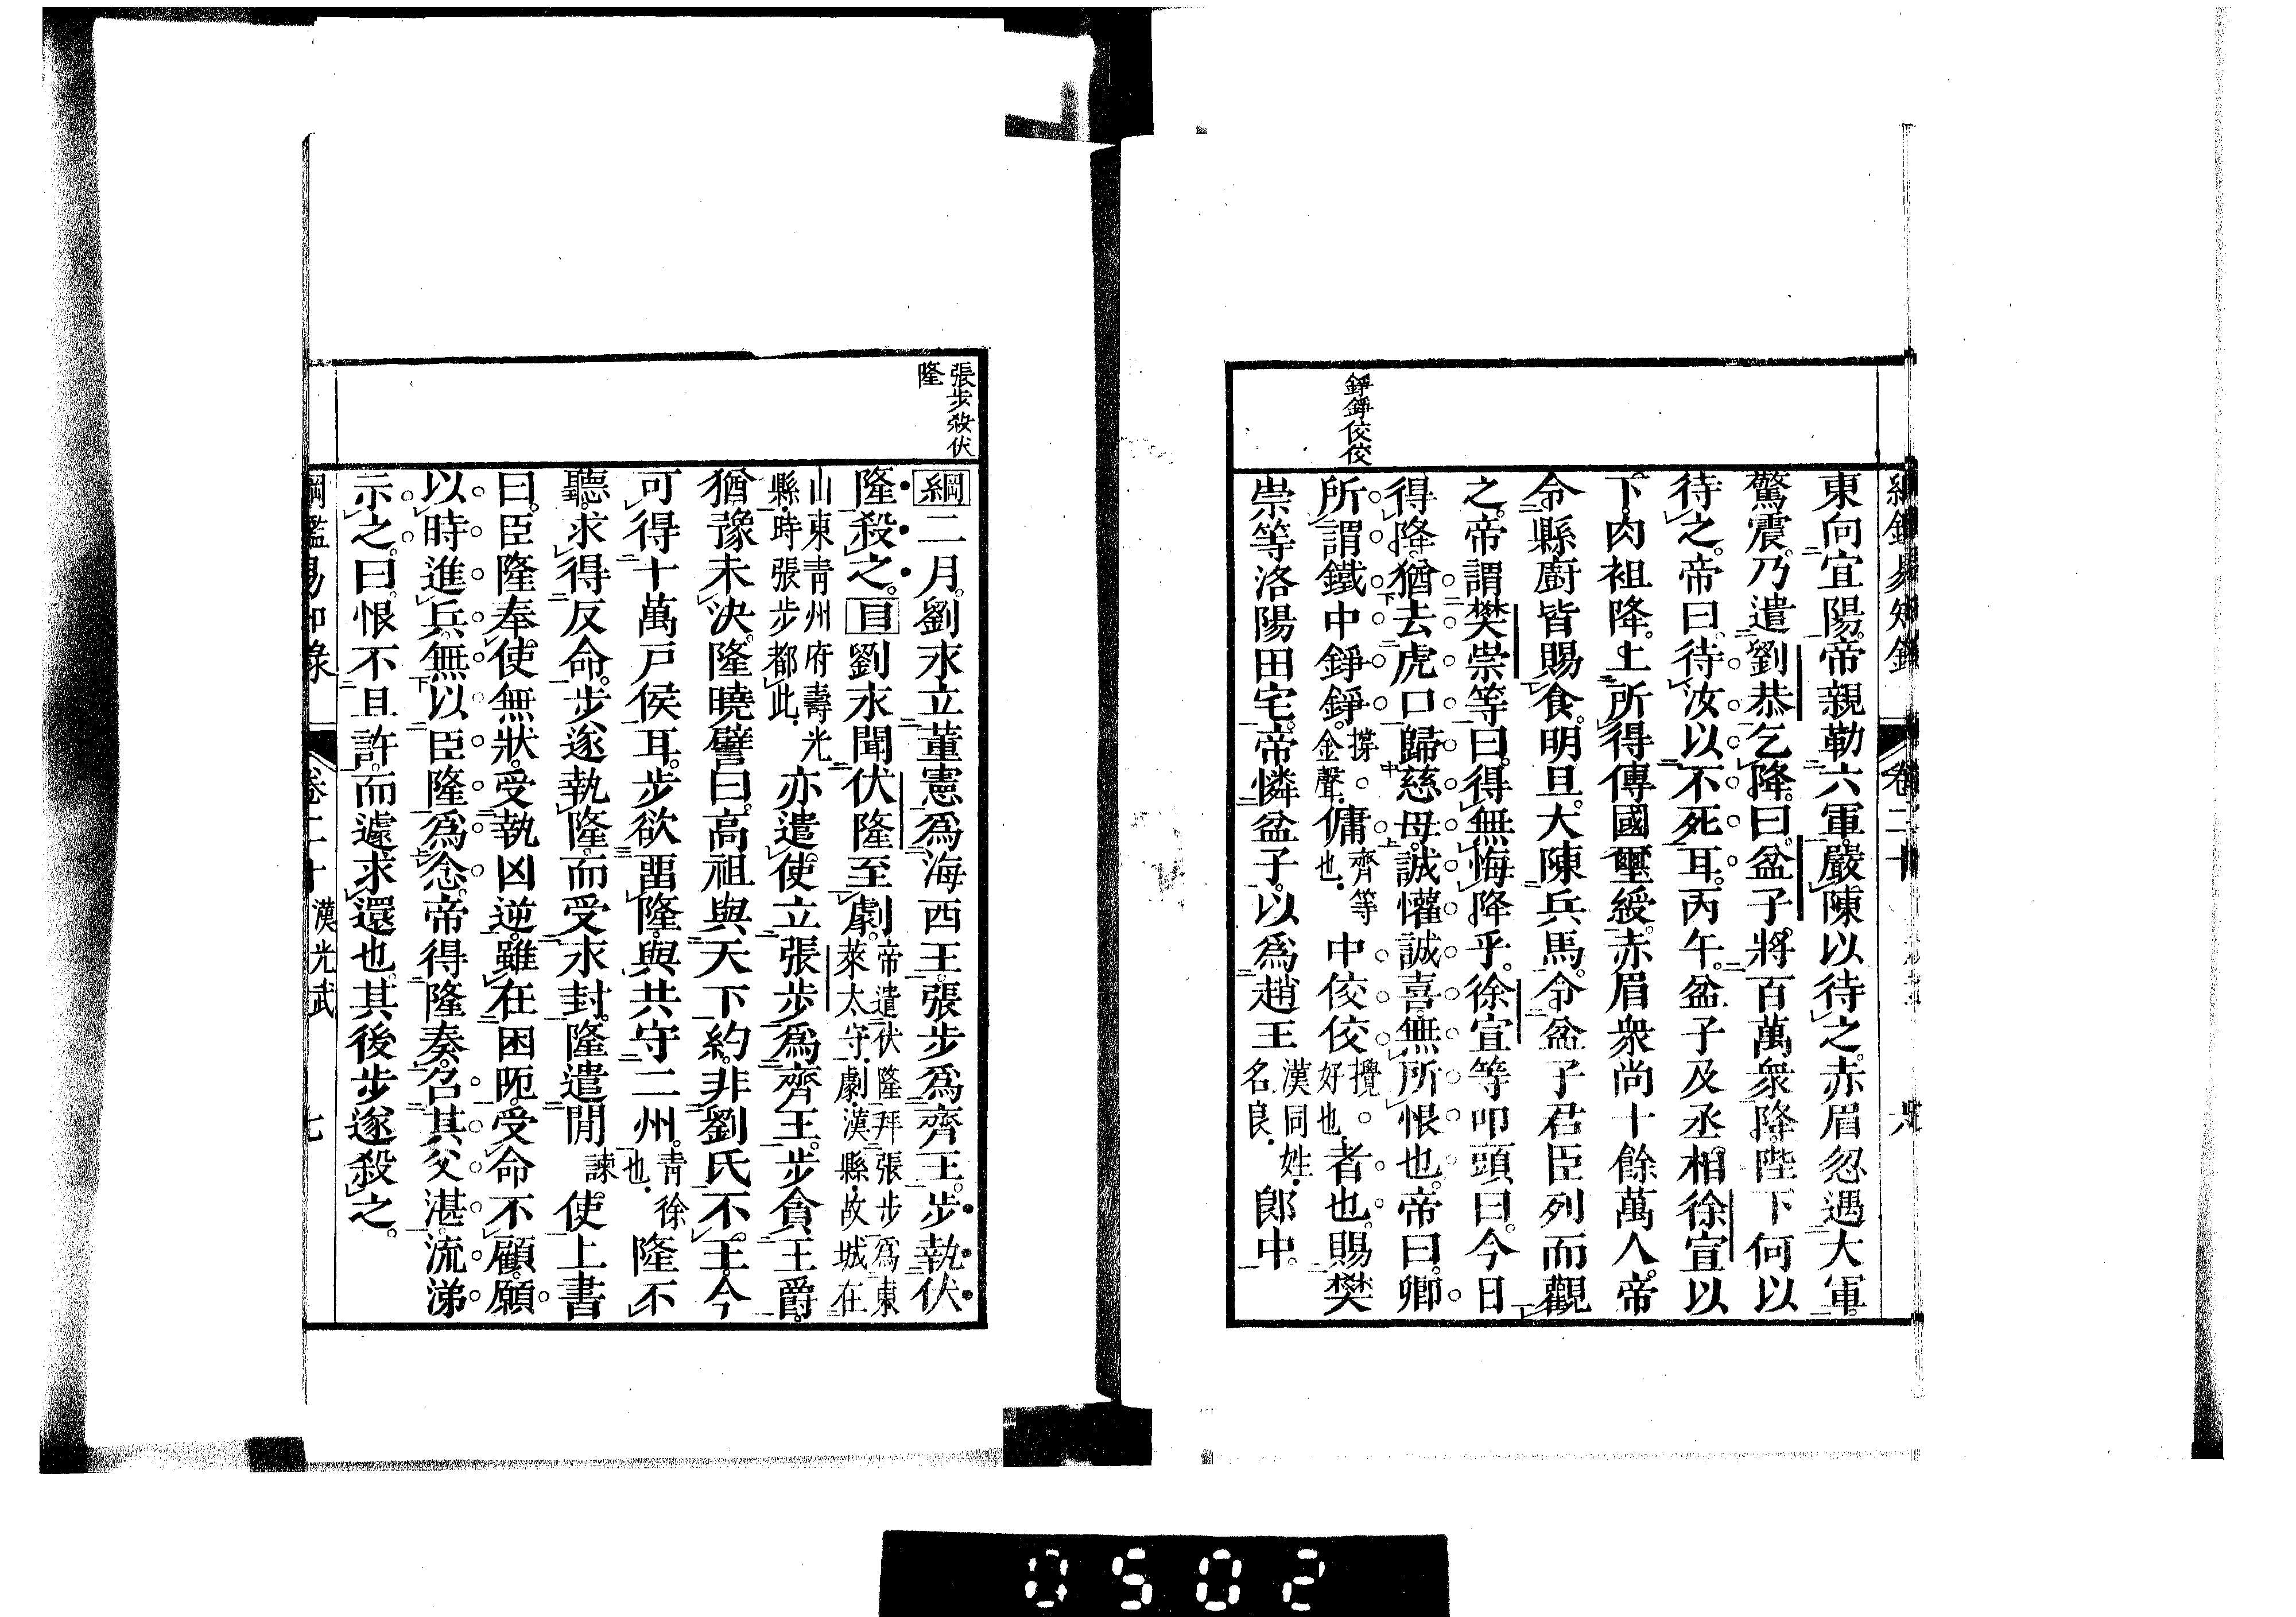 綱鑑易知錄 卷二十 六
東向宜陽。帝親勒六軍。嚴陳以待之。赤眉忽遇大軍。
驚震。乃遣劉恭乞降。曰。盆子將百萬衆降。陛下何以
待之。帝曰。待汝以不死耳。丙午。盆子及丞相徐宣以
下。肉袒降。上所得傳國璽綬。赤眉衆尚十餘萬人。帝
令縣廚皆賜食。明旦。大陳兵馬。令盆子君臣列而觀
之。帝謂樊崇等曰。得無悔降乎。徐宣等叩頭曰。今日
得降。猶去虎口歸慈母。誠懽誠喜。無所恨也。帝曰。卿
錚錚佼佼
所謂鐵中錚錚。撐。金聲。傭齊等也。中佼佼攪。好也。者也。賜樊
崇等洛陽田宅。帝憐盆子。以爲趙王漢同姓。名良。郎中。
張步殺伏
隆
綱二月。劉永立董憲爲海西王。張步爲齊王。步執伏
隆殺之。目劉永聞伏隆至劇。帝遣伏隆拜張步爲東萊太守。劇漢縣。故城在
山東青州府壽光縣。時張步都此。亦遣使立張步爲齊王。步貪王爵。
猶豫未決。隆曉譬曰。高祖與天下約。非劉氏不王。今
可得十萬戸侯耳。步欲畱隆。與共守二州。青徐也。隆不
聽。求得反命。步遂執隆。而受永封。隆遣閒諫。使上書
曰。臣隆奉使無狀。受執凶逆。雖在困阨。受命不顧。願
以時進兵。無以臣隆爲念。帝得隆奏。召其父湛。流涕
示之。曰。恨不且許。而遽求還也。其後步遂殺之。
綱鑑易知錄 卷二十 漢光武 七
0502